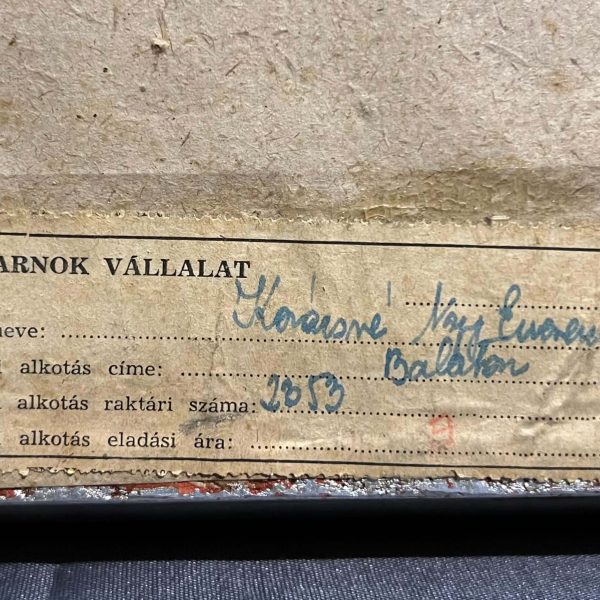 ARNOK VÁLLALAT
neve: Kovácsné Nagy
alkotás címe: Balaton
alkotás raktári száma: 2853
alkotás eladási ára: